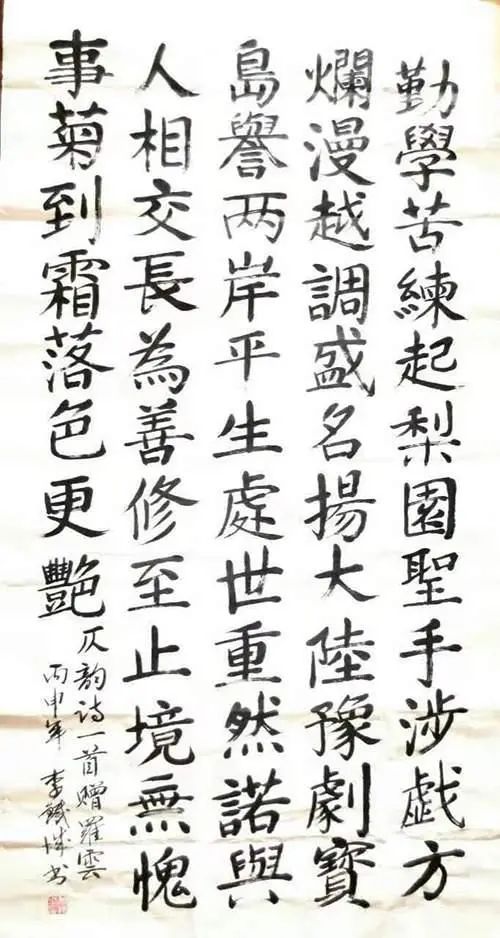 勤學苦練起梨園聖手涉戯方
爛漫越調盛名揚大陸豫劇寶
島譽两岸平生處世重然諾與
人相交長為善修至止境無愧
事菊到霜落色更艷
仄韵诗一首赠羅雲
丙申年 李鐵城书